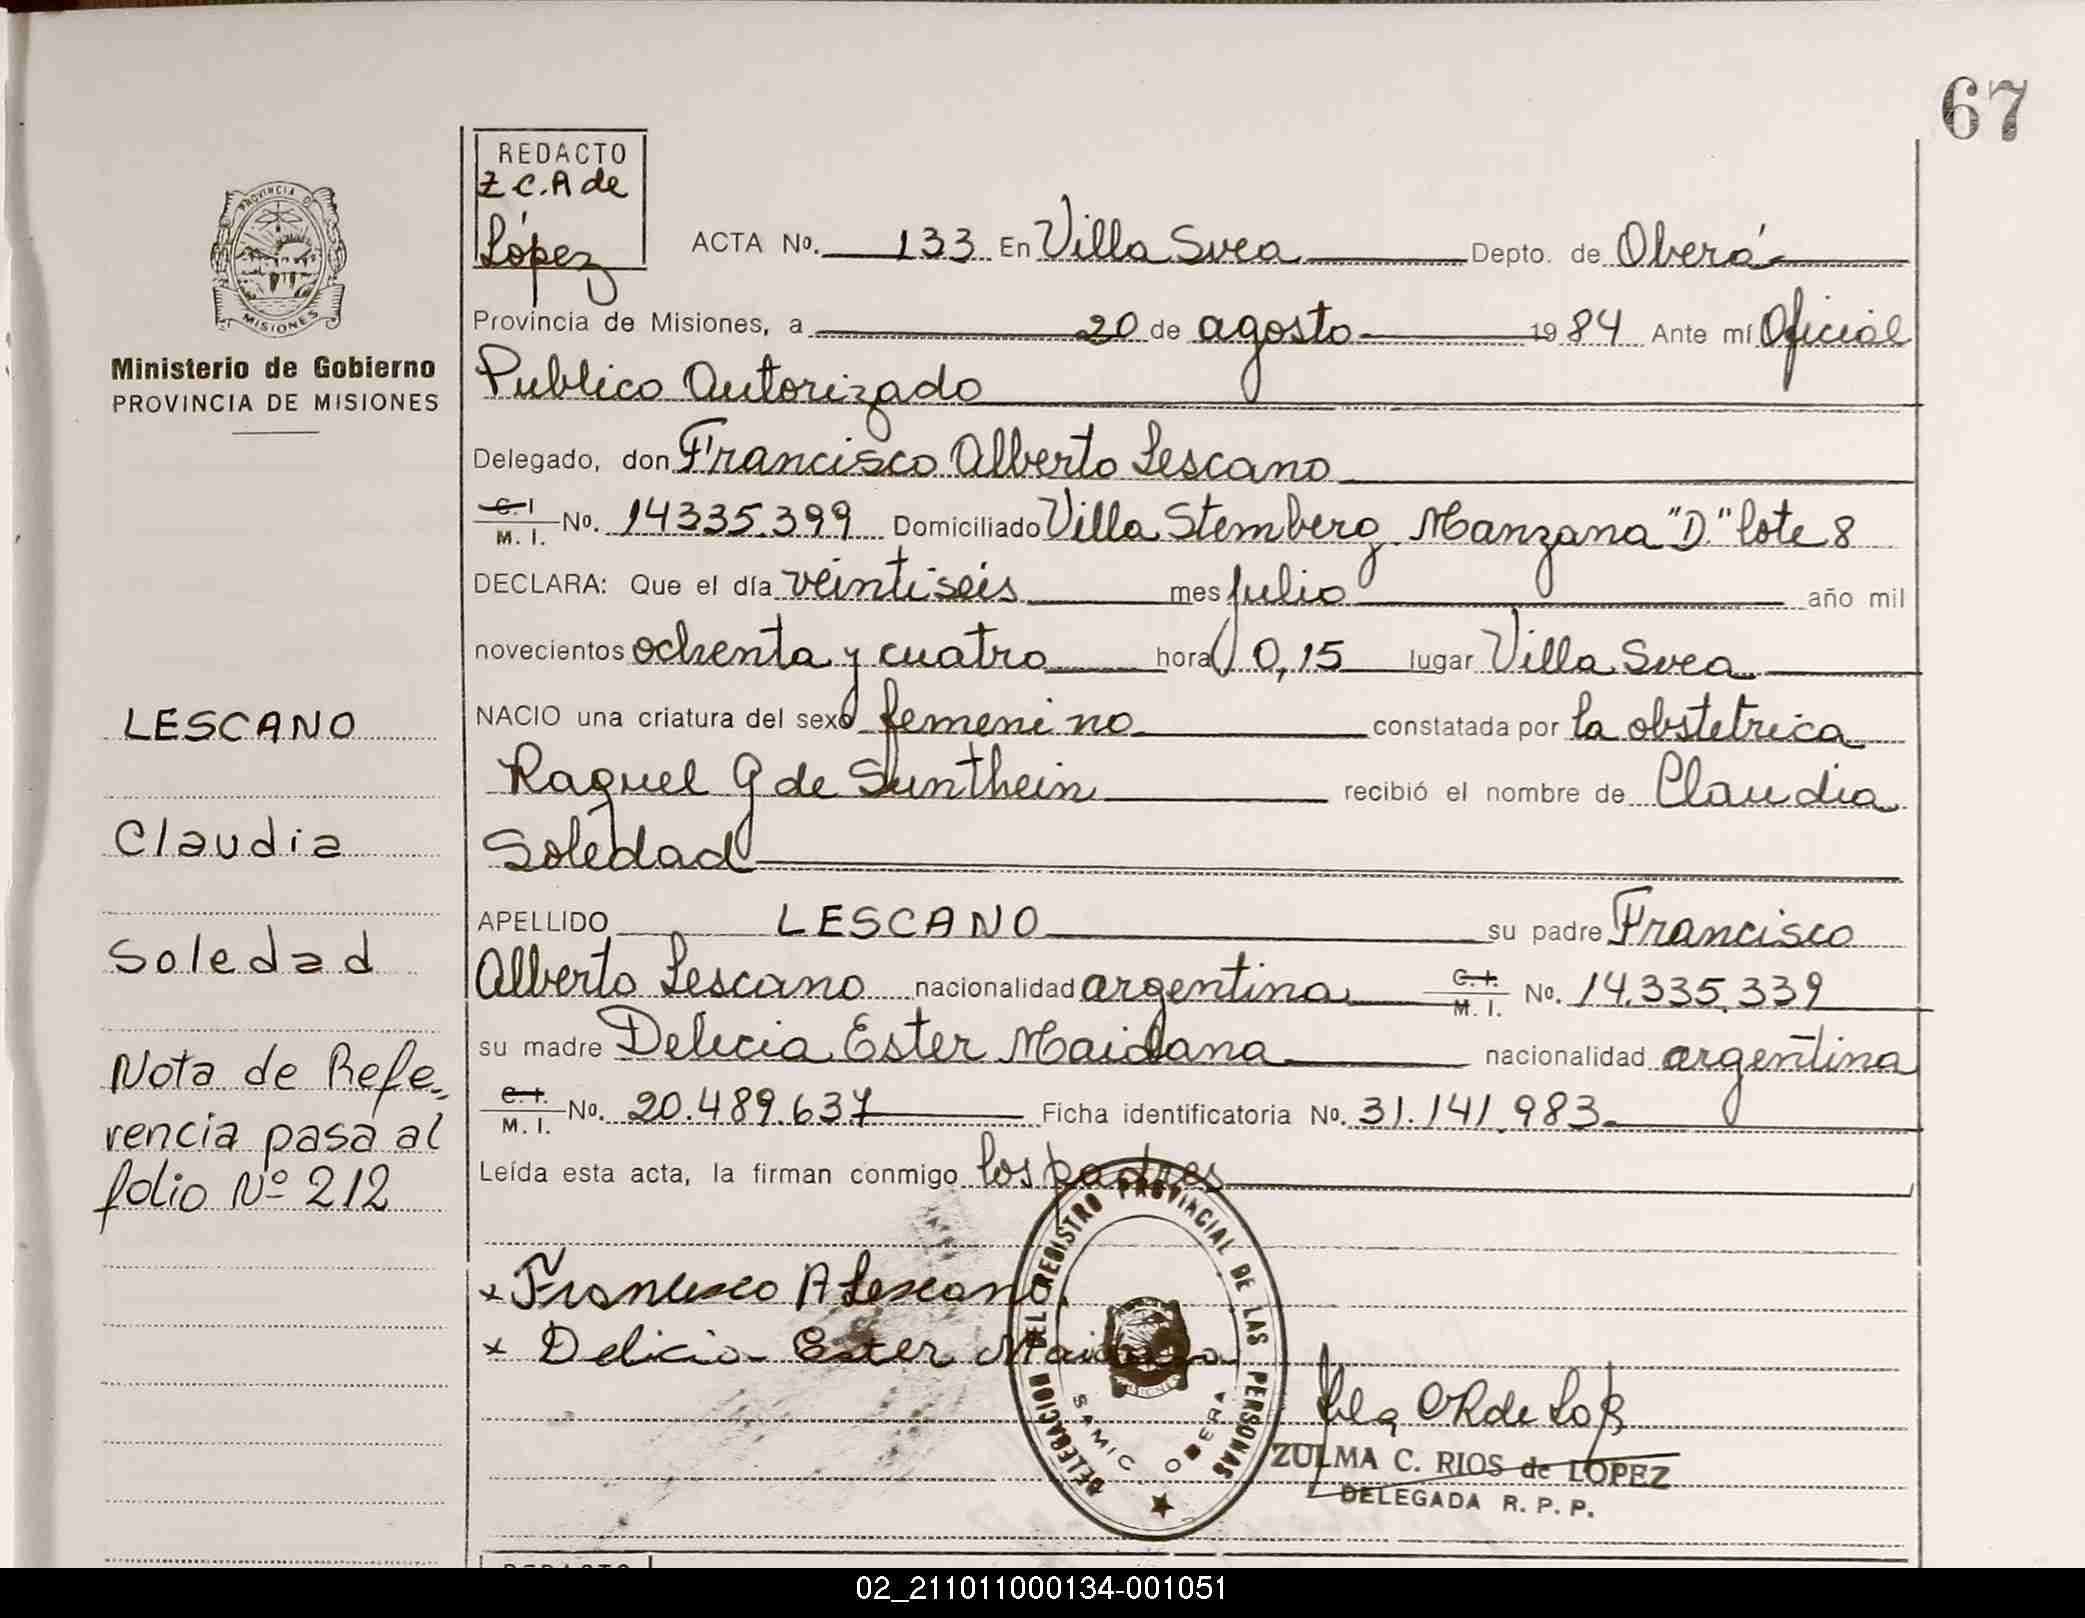 67
REDACTO
Z C. A de
López
ACTA No. 133 En Villa Svea Depto. de Oberá
Provincia de Misiones, a 20 de agosto 1984 Ante mí Oficial
Publico Autorizado
Delegado, don Francisco Alberto Lescano
C. I M. I. No. 14335.399 Domiciliado Villa Stemberg Manzana "D" lote 8
DECLARA: Que el día veintiseis mes julio año mil
novecientos ochenta y cuatro hora 0,15 lugar Villa Svea
NACIO una criatura del sexo femenino constatada por la obstetrica
Raquel G de Sunthein recibió el nombre de Claudia
Soledad
APELLIDO LESCANO su padre Francisco
Alberto Lescano nacionalidad argentina C. I. M. I. No. 14.335.339
su madre Delicia Ester Maidana nacionalidad argentina
C. I. M. I. No. 20.489.637 Ficha identificatoria No. 31.141.983
Leída esta acta, la firman conmigo los padres
x Francisco A Lescano
x Delicia Ester Maidana
DELEGACION DEL REGISTRO PROVINCIAL DE LAS PERSONAS
SAMIC OBERA
MISIONES
ZULMA C. RIOS de LOPEZ
DELEGADA R. P. P.
PROVINCIA D
MISIONES
Ministerio de Gobierno
PROVINCIA DE MISIONES
LESCANO
Claudia
Soledad
Nota de Refe-
rencia pasa al
folio Nº 212
REDACTO
02_211011000134-001051